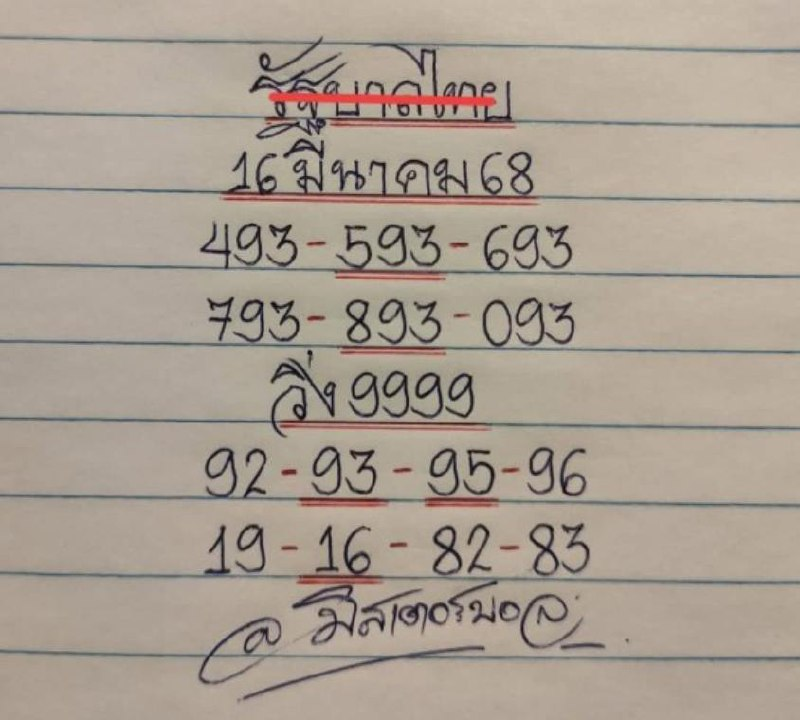 รัฐบาลไทย
16 มีนาคม 68
493-593-693
793-893-093
วิ่ง 9999
92-93-95-96
19-16-82-83
@มิสเตอร์บอล